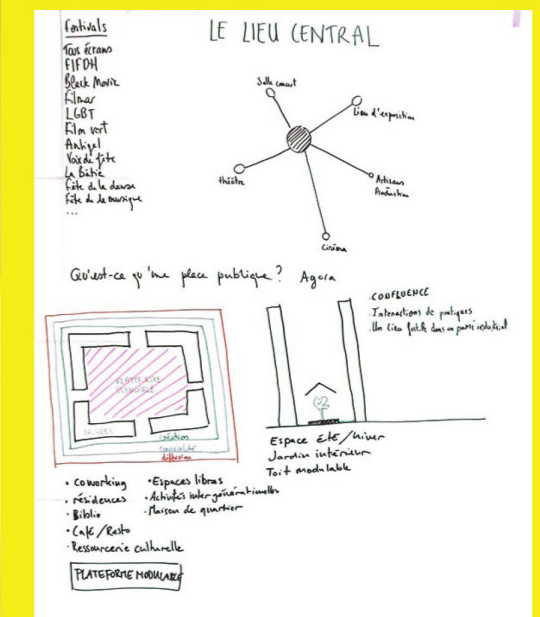 festivals
LE LIEU CENTRAL
Tous écrans
FIFDH
Black Movie
Filmar
LGBT
Film vert
Antigel
Voix de fête
La Bâtie
Fête de la danse
Fête de la musique
...
Salle concert
Lieu d'exposition
théâtre
Artisans
Production
Cinéma
Qu'est-ce qu'une place publique? Agora
CONFLUENCE
- Interactions de pratiques
- Un lieu fertile dans un passé industriel
PLATEFORME
création
diffusion
Espace été/hiver
Jardin intérieur
Toit modulable
• coworking
• résidences
• Biblio
• Café/Resto
• Ressourcerie culturelle
• Espaces libres
• Activités intergénérationelles
• Maison de quartier
PLATEFORME MODULABLE